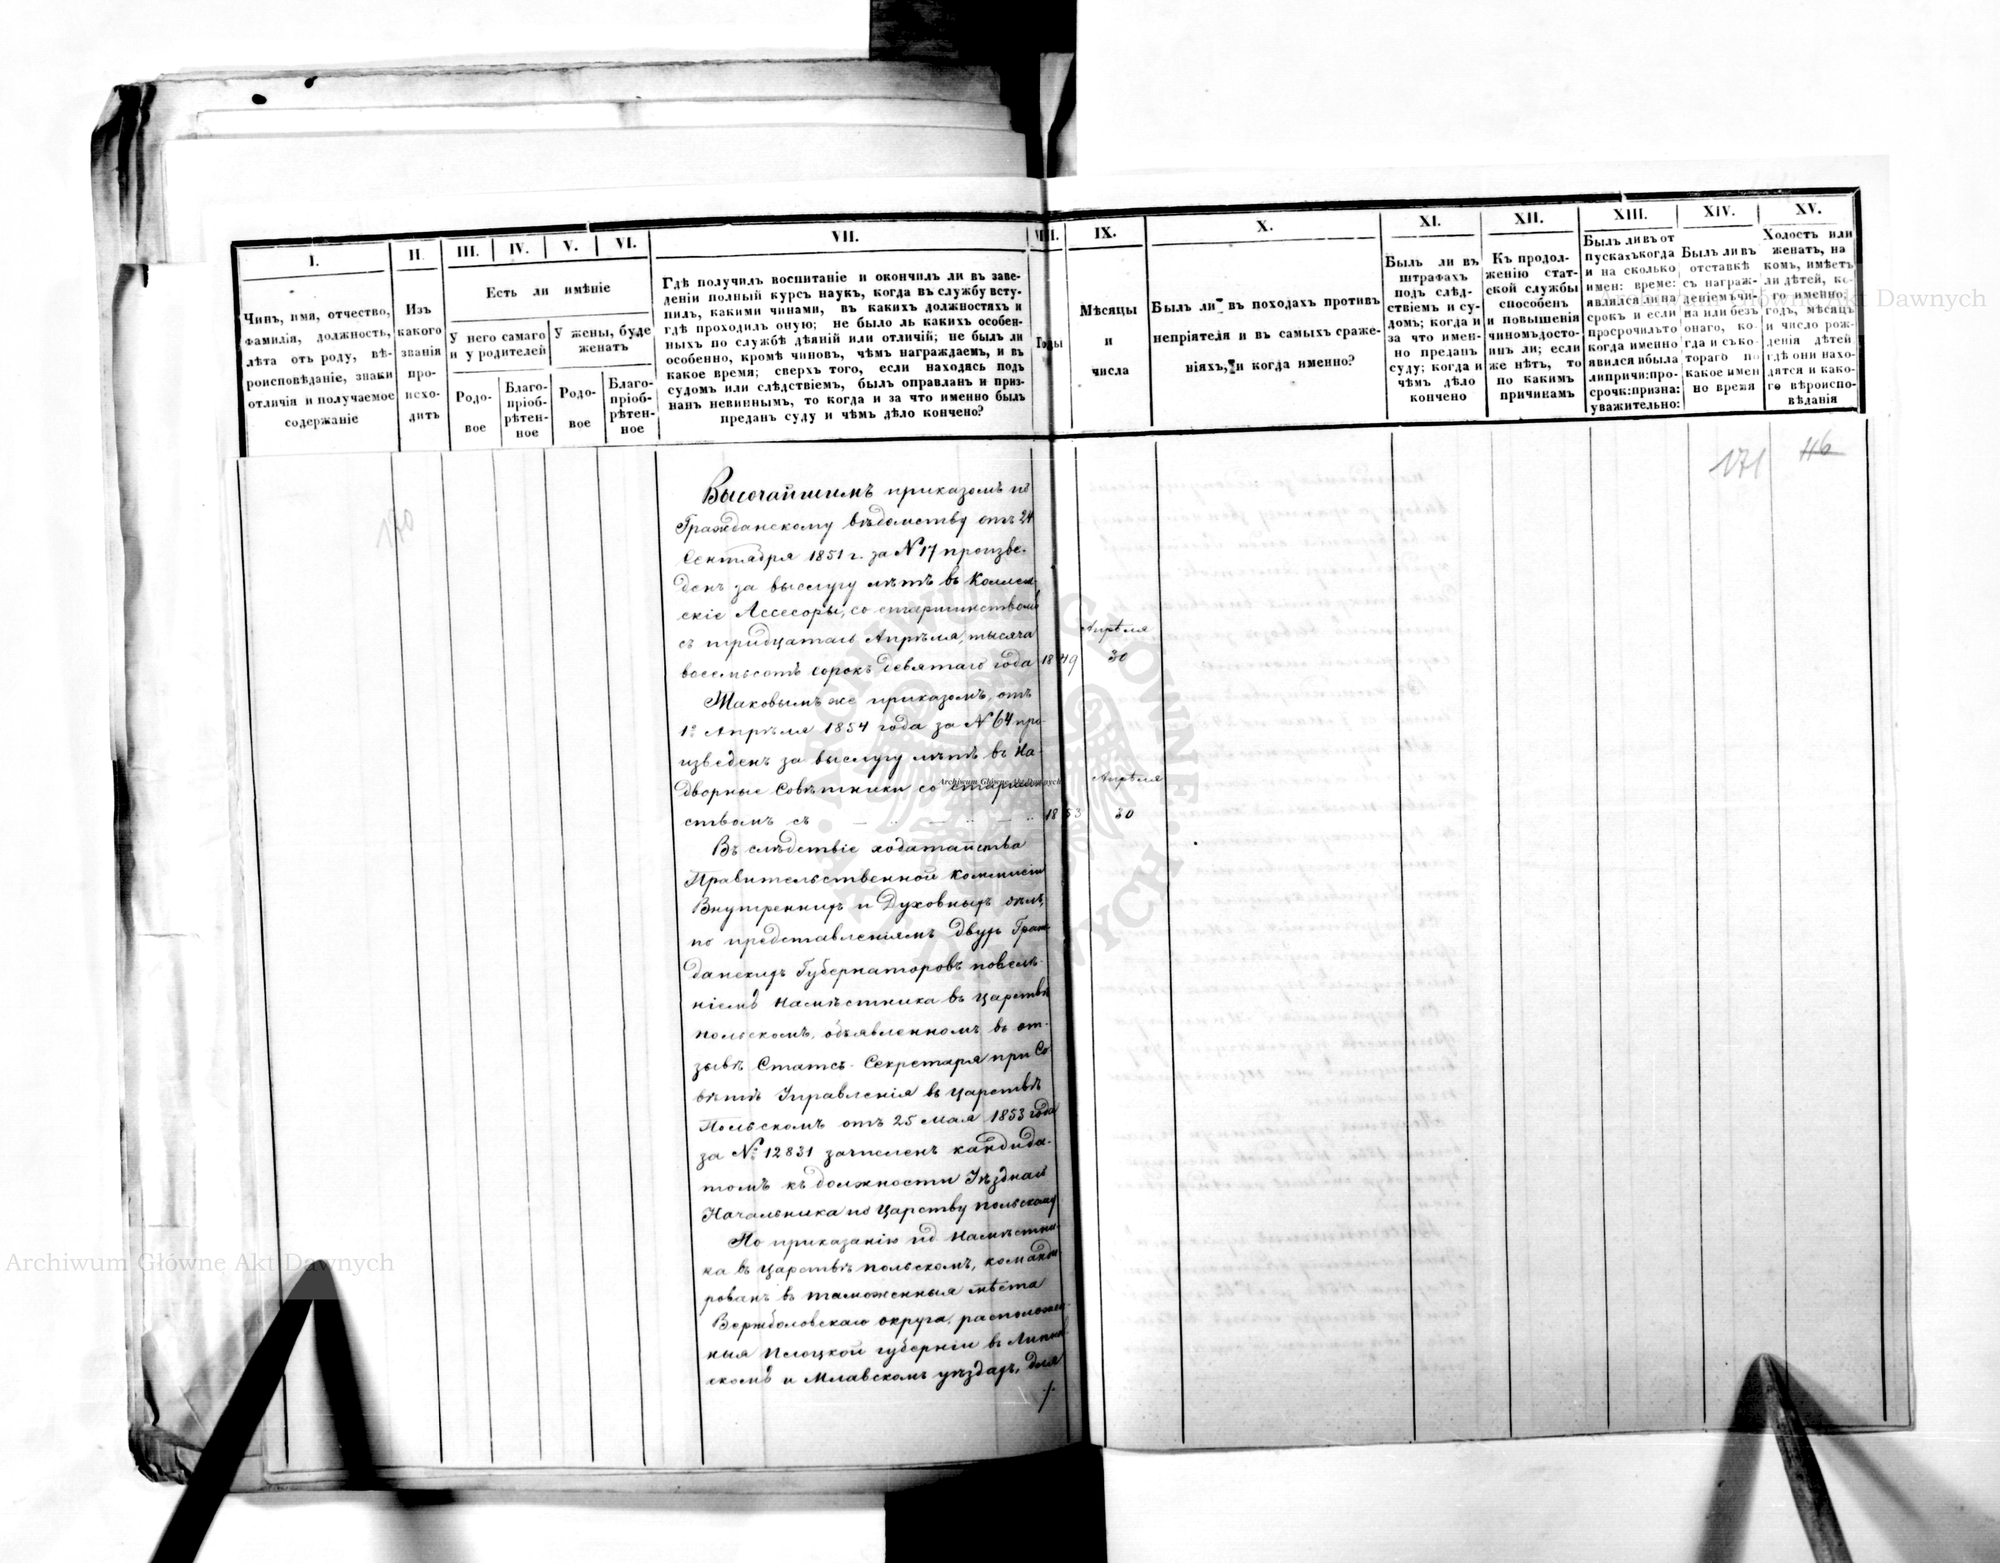 I.
II.
III.
IV.
V.
VI.
VII.
VIII.
IX.
X.
XI.
XII.
XIII.
XIV.
XV.
Чинъ, имя, отчество,
фамилія, должность,
лѣта отъ роду, вѣ-
роисповѣданіе, знаки
отличія и получаемое
содержаніе
Изъ
какого
званія
про-
исхо-
дитъ
Есть ли имѣніе
У него самаго
и у родителей
У жены, буде
женатъ
Родо-
вое
Благо-
пріоб-
рѣтен-
ное
Родо-
вое
Благо-
пріоб-
рѣтен-
ное
Гдѣ получилъ воспитаніе и окончилъ ли въ заве-
деніи полный курсъ наукъ, когда въ службу всту-
пилъ, какими чинами, въ какихъ должностяхъ и
гдѣ проходилъ оную; не было ль какихъ особен-
ныхъ по службѣ дѣяній или отличій; не былъ ли
особенно, кромѣ чиновъ, чѣмъ награждаемъ, и въ
какое время; сверхъ того, если находясь подъ
судомъ или слѣдствіемъ, былъ оправланъ и приз-
нанъ невиннымъ, то когда и за что именно былъ
преданъ суду и чѣмъ дѣло кончено?
Годы
Мѣсяцы
и
числа
Былъ ли въ походахъ противъ
непріятеля и въ самыхъ сраже-
ніяхъ, и когда именно?
Былъ ли въ
штрафахъ
подъ слѣд-
ствіемъ и су-
домъ; когда и
за что имен-
но преданъ
суду; когда и
чѣмъ дѣло
кончено
Къ продол-
женію стат-
ской службы
способенъ
и повышенія
чиномъ досто-
инъ ли; если
же нѣтъ, то
по какимъ
причинамъ
Былъ ли въ от
пускахъ когда
и на сколько
имен: време:
явился ли на
срокъ и если
просрочилъ то
когда именно
явился и была
ли причи: про-
сроч: призна:
уважительно:
Былъ ли въ
отставкѣ
съ награж-
деніемъ чи-
на или безъ
онаго, ко-
гда и съ ко-
тораго по
какое имен
но время
Холостъ или
женатъ, на
комъ, имѣетъ
ли дѣтей, ко-
го именно;
годъ, мѣсяцъ
и число рож-
денія дѣтей
гдѣ они нахо-
дятся и како-
го вѣроиспо-
вѣданія
170
171
116
Высочайшимъ приказомъ по
Гражданскому вѣдомству отъ 24
Сентября 1851 г. за N 17 произве-
денъ за выслугу лѣтъ въ Коллеж-
скіе Ассесоры, со старшинствомъ
съ тридцатаго Апрѣля, тысяча
восемьсотъ сорокъ девятаго года
1849
Апрѣля
30
Таковымъ же приказомъ, отъ
1го Апрѣля 1854 года за N 64 про-
изведенъ за выслугу лѣтъ въ На-
дворные Совѣтники со старшин-
ствомъ съ
1853
Апрѣля
30
Въ слѣдствіе ходатайства
Правительственной Коммисіи
Внутреннихъ и Духовныхъ дѣлъ,
по представленіямъ двухъ Граж-
данскихъ Губернаторовъ повелѣ-
ніемъ Намѣстника въ Царствѣ
Польскомъ, объявленномъ въ от-
зывѣ Статсъ-Секретаря при Со-
вѣтѣ Управленія въ Царствѣ
Польскомъ отъ 25 мая 1853 года
за №: 12831 зачисленъ кандида-
томъ къ должности Уѣзднаго
Начальника по Царству Польскому
По приказанію Намѣстни-
ка въ Царствѣ Польскомъ, команди-
рованъ въ таможенныя мѣста
Вержболовскаго округа, расположен-
ныя Плоцкой губерніи въ Липнов-
скомъ и Млавскомъ уѣздахъ, для
./.
Archiwum Główne Akt Dawnych
Archiwum Główne Akt Dawnych
Archiwum Główne Akt Dawnych
ARCHIWUM GŁÓWNE AKT DAWNYCH